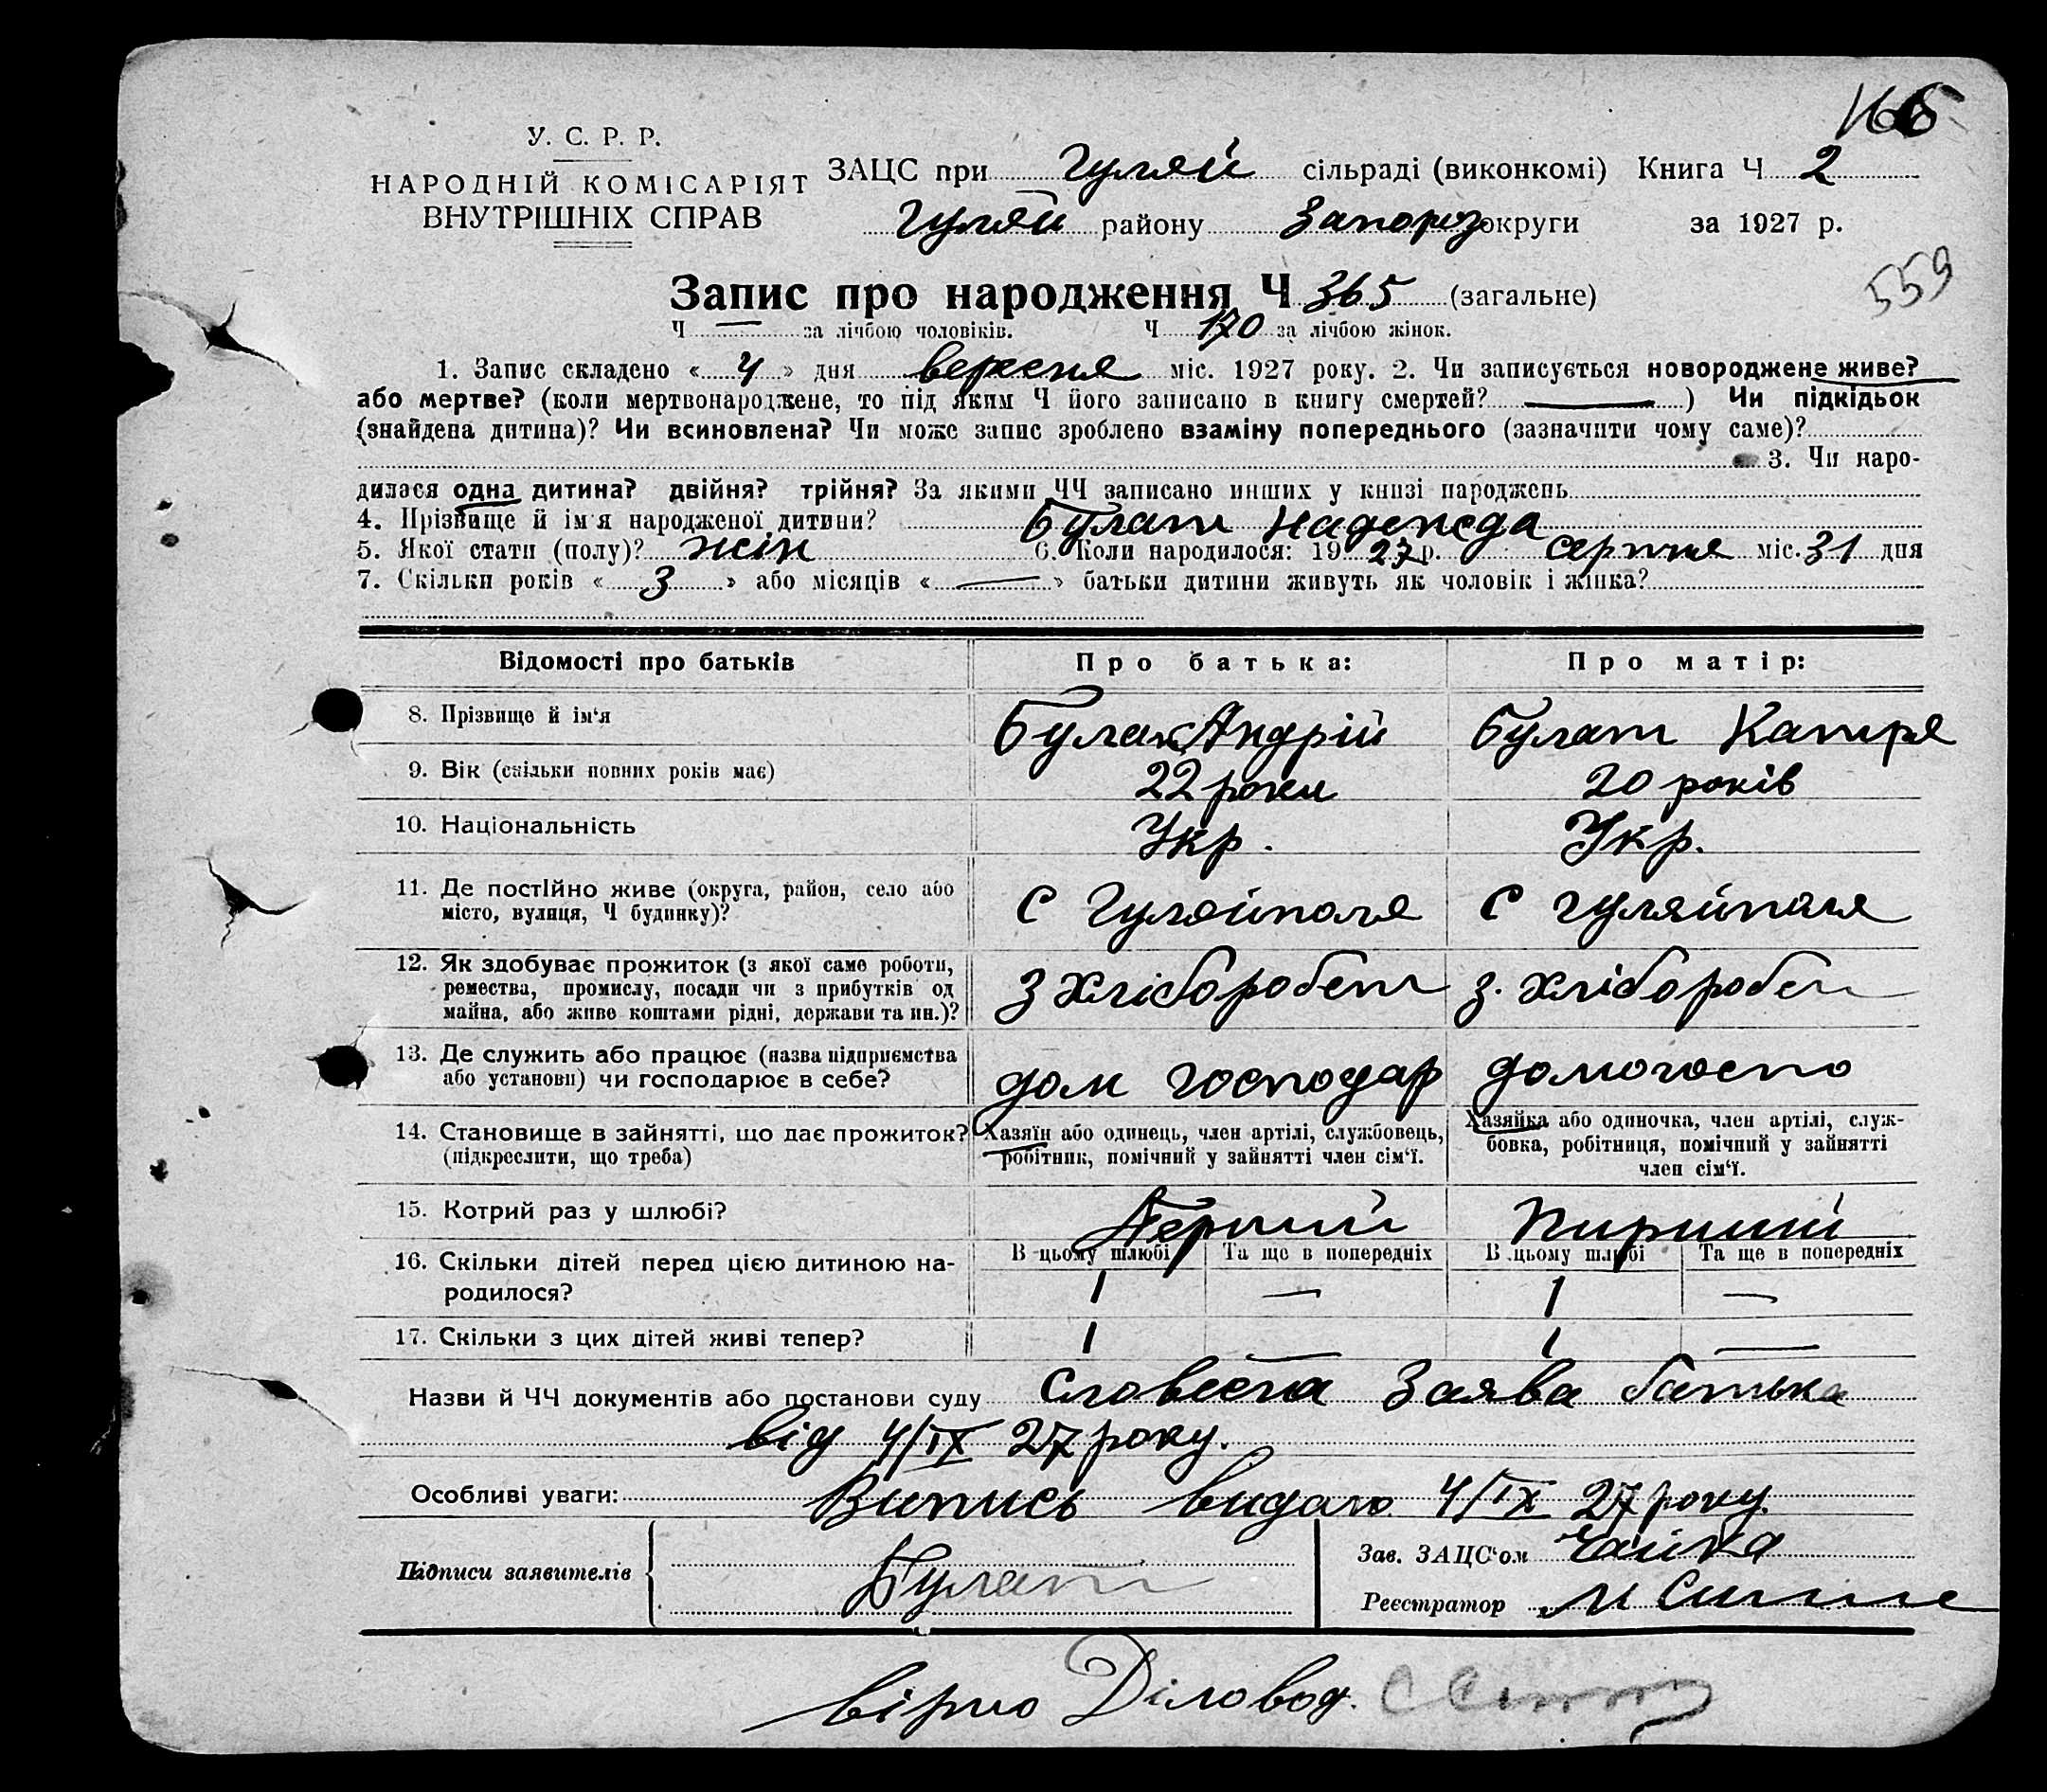 У. С. Р. Р.
НАРОДНІЙ КОМІСАРІЯТ
ВНУТРІШНІХ СПРАВ
ЗАЦС при Гуляй сільраді (виконкомі) Книга Ч 2
Гуляй району Запороз округи за 1927 р.
559
Запис про народження Ч 365 (загальне)
Ч — за лічбою чоловіків. Ч 170 за лічбою жінок.
1. Запис складено « 4 » дня вересня міс. 1927 року. 2. Чи записується новороджене живе?
або мертве? (коли мертвонароджене, то під яким Ч його записано в книгу смертей? —) Чи підкідьок
(знайдена дитина)? Чи всиновлена? Чи може запис зроблено взаміну попереднього (зазначити чому саме)?
3. Чи наро-
дилася одна дитина? двійня? трійня? За якими ЧЧ записано инших у книзі народжень
4. Прізвище й ім'я народженої дитини? Булат Надежда
5. Якої стати (полу)? жін 6. Коли народилося: 1927 р. серпня міс. 31 дня
7. Скільки років « 3 » або місяців « — » батьки дитини живуть як чоловік і жінка?
Відомості про батьків Про батька: Про матір:
8. Прізвище й ім'я Булат Андрій Булат Катря
9. Вік (скільки повних років має) 22 роки 20 років
10. Національність Укр. Укр.
11. Де постійно живе (округа, район, село або
місто, вулиця, Ч будинку)? С Гуляйполя С Гуляйполя
12. Як здобуває прожиток (з якої саме роботи,
ремества, промислу, посади чи з прибутків од
майна, або живе коштами рідні, держави та ин.)? З хліборобст З. хлібороб
13. Де служить або працює (назва підприємства
або установи) чи господарює в себе? дом господар домогоспо
14. Становище в зайнятті, що дає прожиток?
(підкреслити, що треба)
Хазяїн або одинець, член артілі, службовець,
робітник, помічний у зайнятті член сім'ї.
Хазяйка або одиночка, член артілі, служ-
бовка, робітниця, помічний у зайнятті
член сім'ї.
15. Котрий раз у шлюбі? Перший Пирший
В цьому шлюбі Та ще в попередніх В цьому шлюбі Та ще в попередніх
16. Скільки дітей перед цією дитиною на-
родилося? 1 — 1 —
17. Скільки з цих дітей живі тепер? 1 — 1 —
Назви й ЧЧ документів або постанови суду Словесна Заява батька
від 4/IX 27 року.
Особливі уваги: Випись видано 4/IX 27 року.
Підписи заявителів Булат
Зав. ЗАЦС'ом Чайка
Реєстратор М
вірно Діловод.